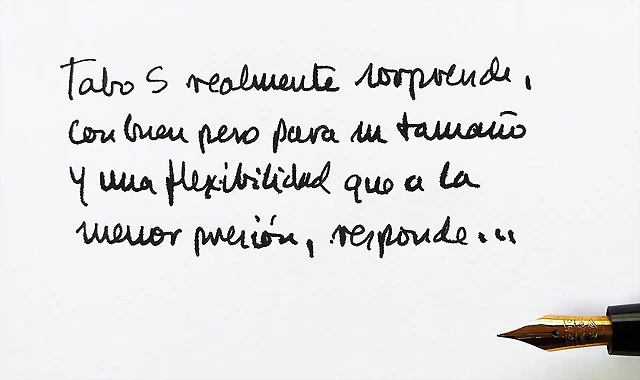 Tabo S realmente sorprende,
con buen peso para su tamaño
y una flexibilidad que a la
menor presión, responde...